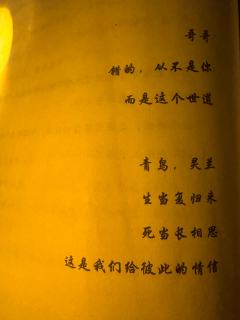 哥哥
错的，从不是你
而是这个世道
青鸟，灵兰
生当复归来
死当长相思
这是我们给彼此的情信